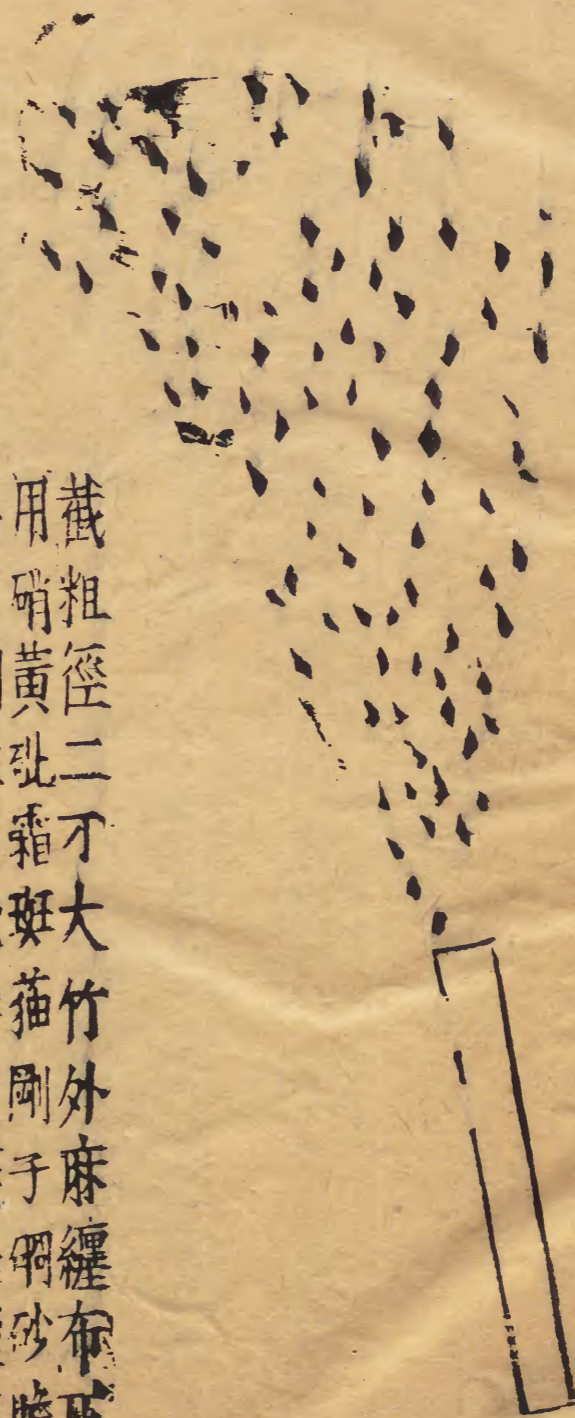 截粗徑二寸大竹外麻纏布
用硝黃砒霜斑猫剛子硇砂膽